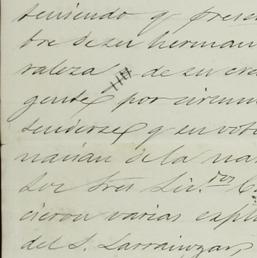 teniendo q presen
bre de ser herman
raleza de su cre
gente por circun
tenderse q su voto
narian de la na
Los tres Lic.dos C
cieron varias expl
del S. Larrainzar,